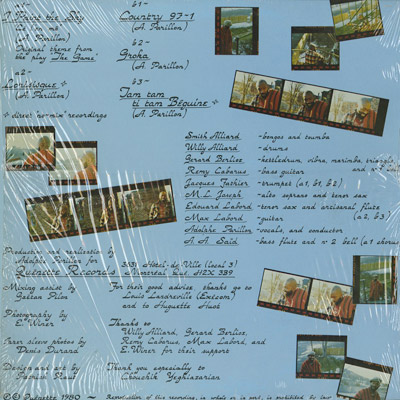 a1-
I Paint the Sky
lie on me
(A. Parillon)
Original theme from
the play "The Game"
a2-
Loriésque *
(A. Parillon)
* direct "no-mix" recordings
b1-
Country 97-1
(A. Parillon)
b2-
Groka
(A. Parillon)
b3-
Tam tam
ti tam Béguine *
(A. Parillon)
Smith Alliard - bongos and tumba
Willy Alliard - drums
Gerard Berlioz - kettledrum, vibra, marimba, triangle,
Remy Cabarus - bass guitar
Jacques Fashier - trumpet (a1, b1, b2)
M. L. Joseph - alto soprano and tenor sax
Edouard Labord - tenor sax and artisanal flute
Max Labord - guitar (a2, b3)
Adolphe Parillon - vocals, and conductor
A. A. Said - bass flute and n° 2 bell (a1 chorus
Production and realisation by
Adolphe Parillon for
Quenette Records
3531 Hôtel-de-Ville (local 3)
Montréal Qué. H2X 3B9
Mixing assist by
Gaétan Pilon
Photography by
E. Winer
Inner sleeve photos by
Denis Durand
Design and art by
For their good advice thanks go to
Louis Landreville (Extcom)
and to Huguette Huot
Thanks to
Willy Alliard, Gerard Berlioz,
Remy Cabarus, Max Labord, and
E. Winer for their support
Thank you especially to
Chouchik Yeghiazarian
©℗ Quenette 1980 - Reproduction of this recording, in whole or in part, is prohibited by law